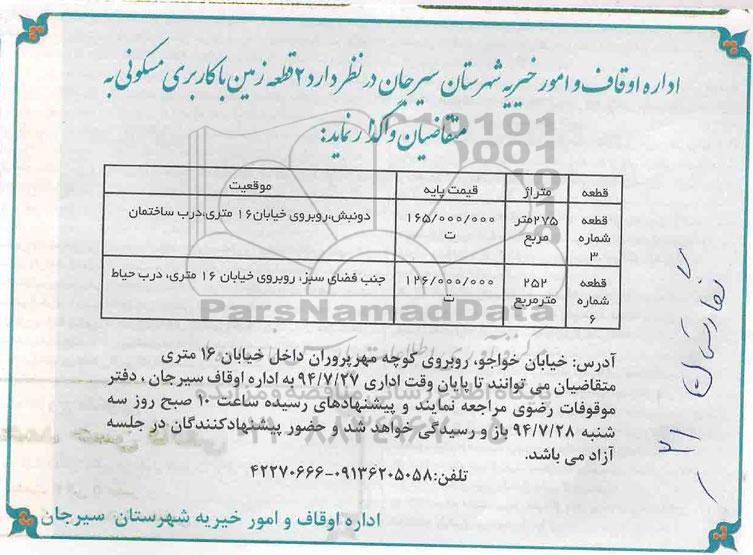 اداره اوقاف و امور خیریه شهرستان سیرجان در نظر دارد ۲ قطعه زمین با کاربری مسکونی به
متقاضیان واگذار نماید:
قطعه متراژ قیمت پایه موقعیت
قطعه شماره ۳ ۲۷۵متر مربع ۱۶۵/۰۰۰/۰۰۰ ت دونبش،روبروی خیابان ۱۶ متری،درب ساختمان
قطعه شماره ۶ ۲۵۲ مترمربع ۱۲۶/۰۰۰/۰۰۰ ت جنب فضای سبز، روبروی خیابان ۱۶ متری، درب حیاط
ParsNamadData
آدرس: خیابان خواجو، روبروی کوچه مهرپروران داخل خیابان ۱۶ متری
متقاضیان می توانند تا پایان وقت اداری ۹۴/۷/۲۷ به اداره اوقاف سیرجان ، دفتر
موقوفات رضوی مراجعه نمایند و پیشنهادهای رسیده ساعت ۱۰ صبح روز سه
شنبه ۹۴/۷/۲۸ باز و رسیدگی خواهد شد و حضور پیشنهادکنندگان در جلسه
آزاد می باشد.
تلفن:۰۹۱۳۶۲۰۵۰۵۸-۴۲۲۷۰۶۶۶
اداره اوقاف و امور خیریه شهرستان سیرجان